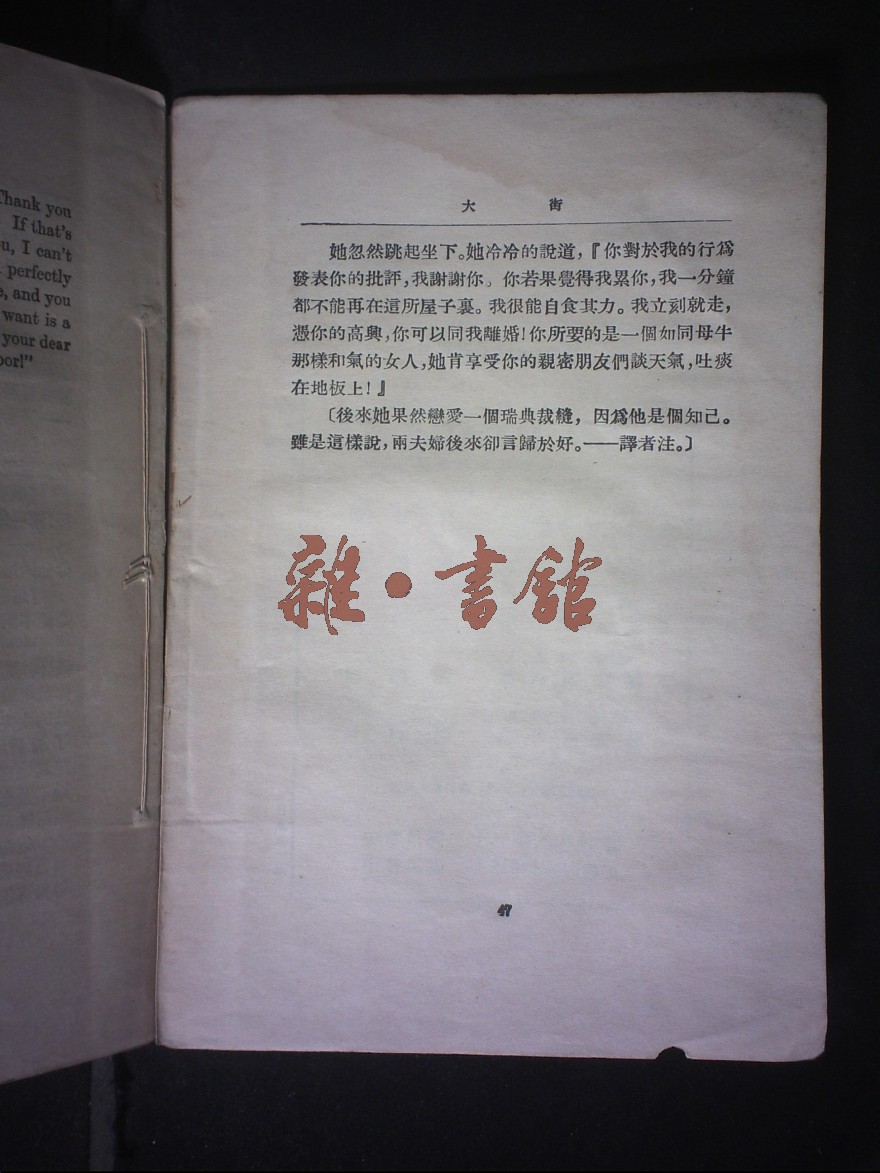 Thank you
If that's
u, I can't
perfectly
e, and you
want is a
your dear
oor!"
大 街
她忽然跳起坐下。她冷冷的說道，『你對於我的行爲
發表你的批評，我謝謝你。你若果覺得我累你，我一分鐘
都不能再在這所屋子裏。我很能自食其力。我立刻就走，
憑你的高興，你可以同我離婚！你所要的是一個如同母牛
那樣和氣的女人，她肯享受你的親密朋友們談天氣，吐痰
在地板上！』
〔後來她果然戀愛一個瑞典裁縫，因爲他是個知己。
雖是這樣說，兩夫婦後來卻言歸於好。——譯者注。〕
雜·書館
47